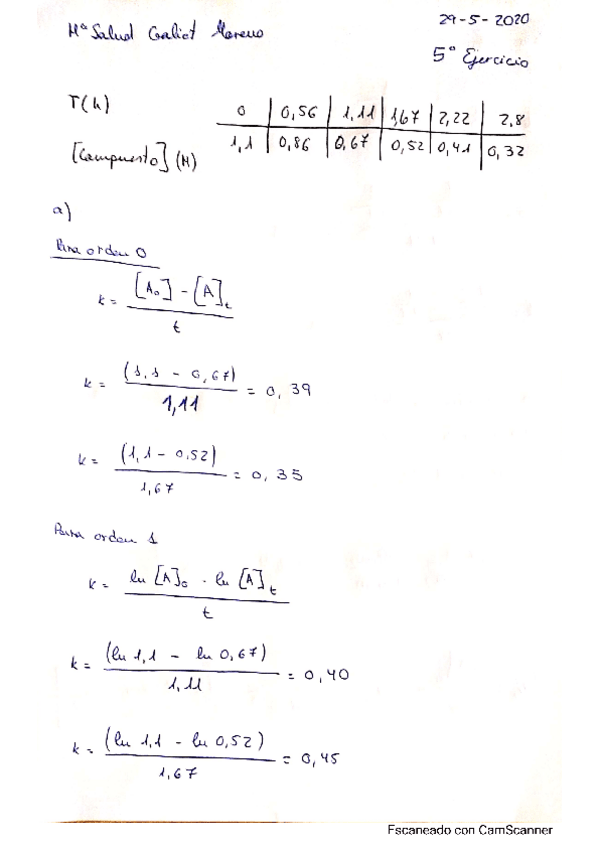 Mª Salud Galiot Moreno
29-5-2020
5º Ejercicio
T(h) 0 | 0,56 | 1,11 | 1,67 | 2,22 | 2,8
[Compuesto] (M) 1,1 | 0,86 | 0,67 | 0,52 | 0,41 | 0,32
a)
Para orden 0
k = [A₀] - [A]t / t
k = (1,1 - 0,67) / 1,11 = 0,39
k = (1,1 - 0,52) / 1,67 = 0,35
Para orden 1
k = ln [A]₀ - ln [A]t / t
k = (ln 1,1 - ln 0,67) / 1,11 = 0,40
k = (ln 1,1 - ln 0,52) / 1,67 = 0,45
Escaneado con CamScanner